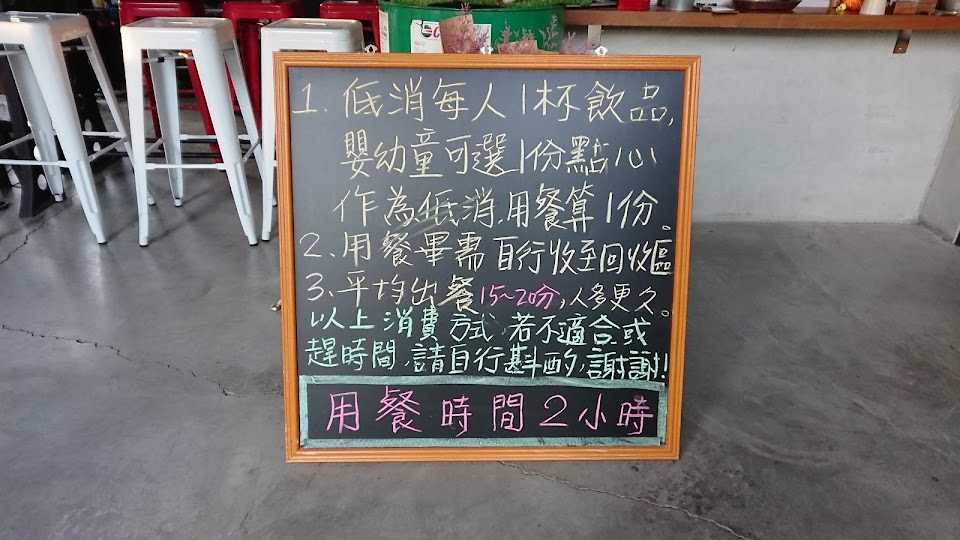 1. 低消每人1杯飲品,
嬰幼童可選1份點心
作為低消,用餐算1份。
2. 用餐畢需自行收至回收區
3. 平均出餐15~20分,人多更久。
以上消費方式,若不適合或
趕時間,請自行斟酌,謝謝!
用餐時間2小時